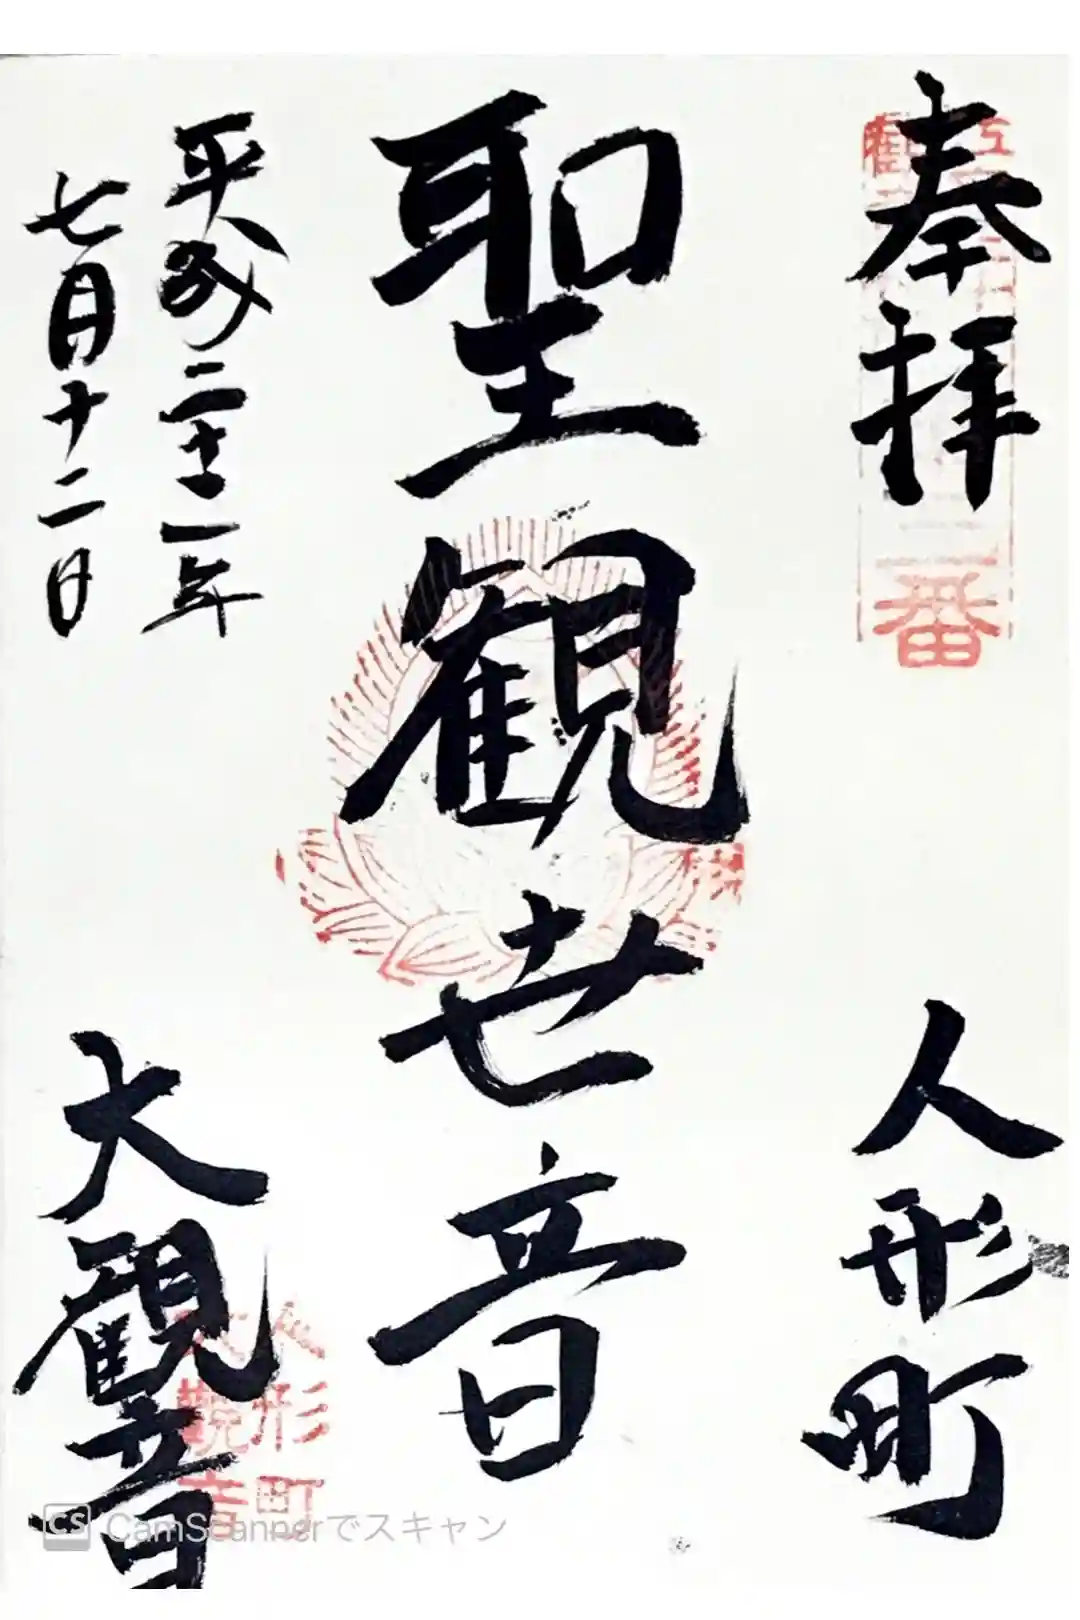 奉拝
人形町
聖観世音
平成二十一年
七月十二日
大観音
番
人形町
大観音
CS CamScannerでスキャン